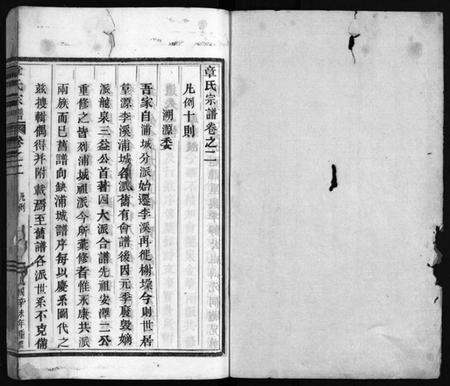 章氏宗譜卷之二
凡例十則
溯源委
吾家自浦城分派始遷李溪再徙樹堞今則世居
派龍泉三益公首著四大派合譜先祖安澤二公
重修之皆列浦城祖派今所彙修者惟永康共派
兩族而已舊譜向缺浦城譜序每以慶系圖代之
茲搜輯偶得并附載焉至舊譜各派世系不克備
章氏宗譜
卷之二
凡例